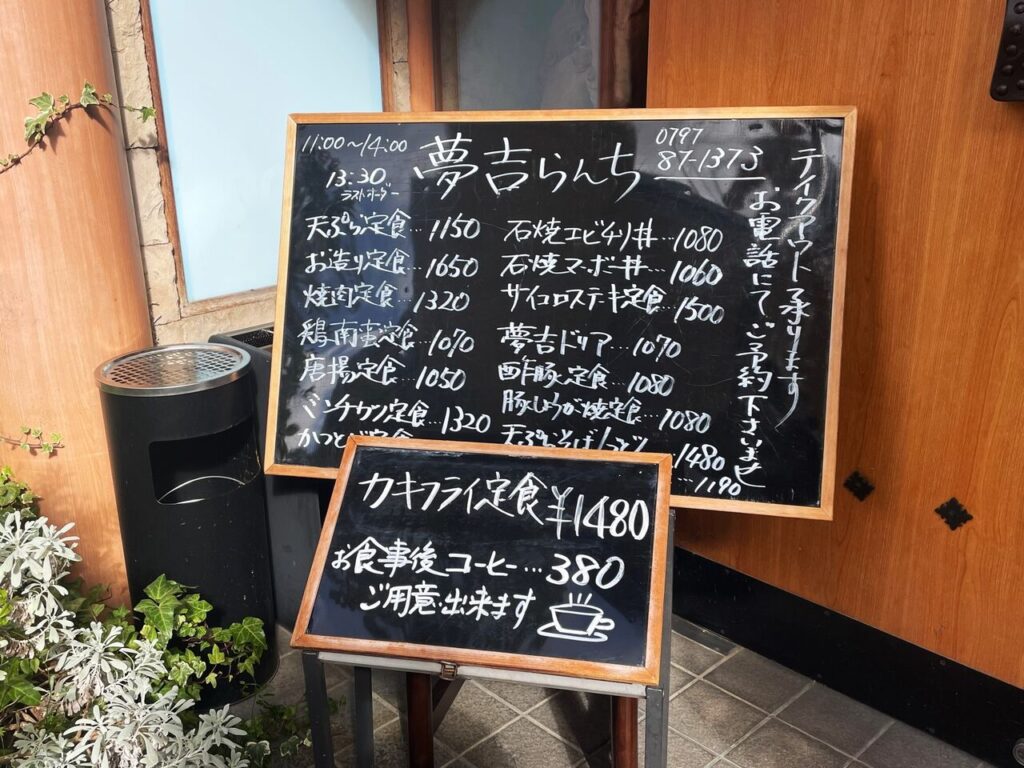 11:00〜14:00
13:30
ラストオーダー
夢吉らんち
0797
87-1373
天ぷら定食…1150
お造り定食…1650
焼肉定食…1320
鶏南蛮定食…1070
唐揚定食…1050
パンチカツ定食…1320
石焼エビチリ丼…1080
石焼マーボー丼…1060
サイコロステキ定食…1500
夢吉ドリア…1070
酢豚定食…1080
豚しょうが焼定食…1080
…1480
…1190
テイクアウト承ります
お電話にてご予約下さいませ
カキフライ定食 ¥1480
お食事後コーヒー…380
ご用意出来ます